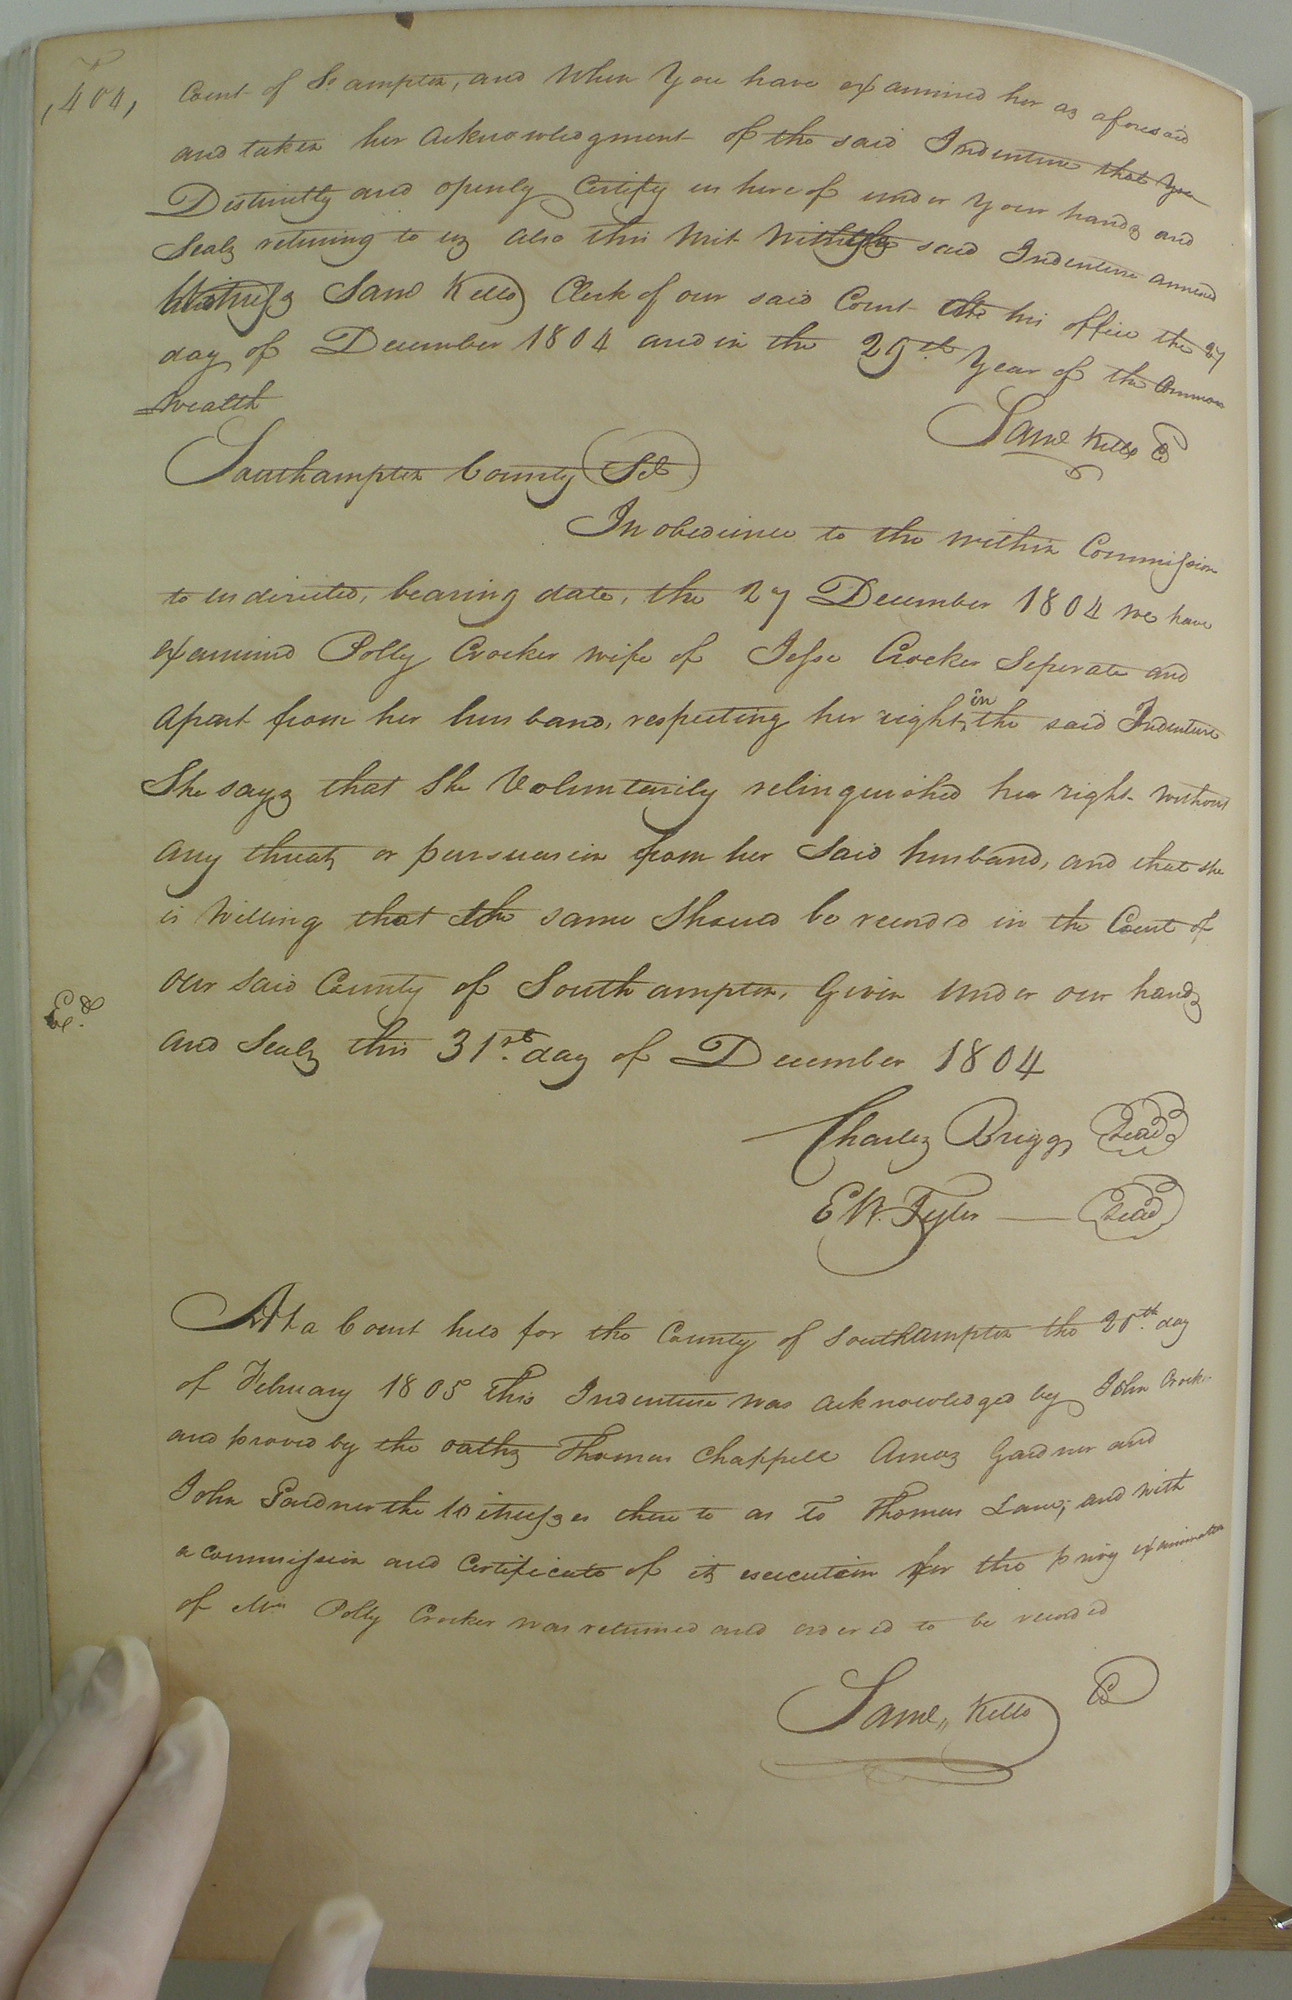 ,404,
Court of So ampton, and When You have examined her as aforesaid
and taken her acknowledgment of the said Indenture that You
Distinctly and openly Certify us hereof under Your hands and
Seals returning to us also this Writ With the said Indenture annexed
Witness Saml Kello Clerk of our said Court at his office the 27
day of December 1804 and in the 29th Year of the Common
=wealth
Saml Kello C
Southampton County Sct
In obedience to the within Commission
to us directed, bearing date, the 27 December 1804 we have
examined Polly Crocker wife of Jesse Crocker Seperate and
apart from her husband, respecting her right in the said Indenture
She says that She Voluntarily relinquished her right without
any threats or persuasion from her Said husband, and that she
is Willing that the same Should be recorded in the Court of
our said County of Southampton, Given under our hands
Ed.
and Seals this 31st. day of December 1804
Charles Briggs Seal
E W. Tyler — Seal
At a Court held for the County of Southampton the 20th day
of February 1805 This Indenture was acknowledged by John Crocker
and proved by the oaths Thomas Chappell Amos Gardner and
John Gardner the Witnesses there to as to Thomas Lane; and With
a commission and Certificate of its execution for the privy examination
of Mrs Polly Crocker was returned and ordered to be recorded
Saml,, Kello C